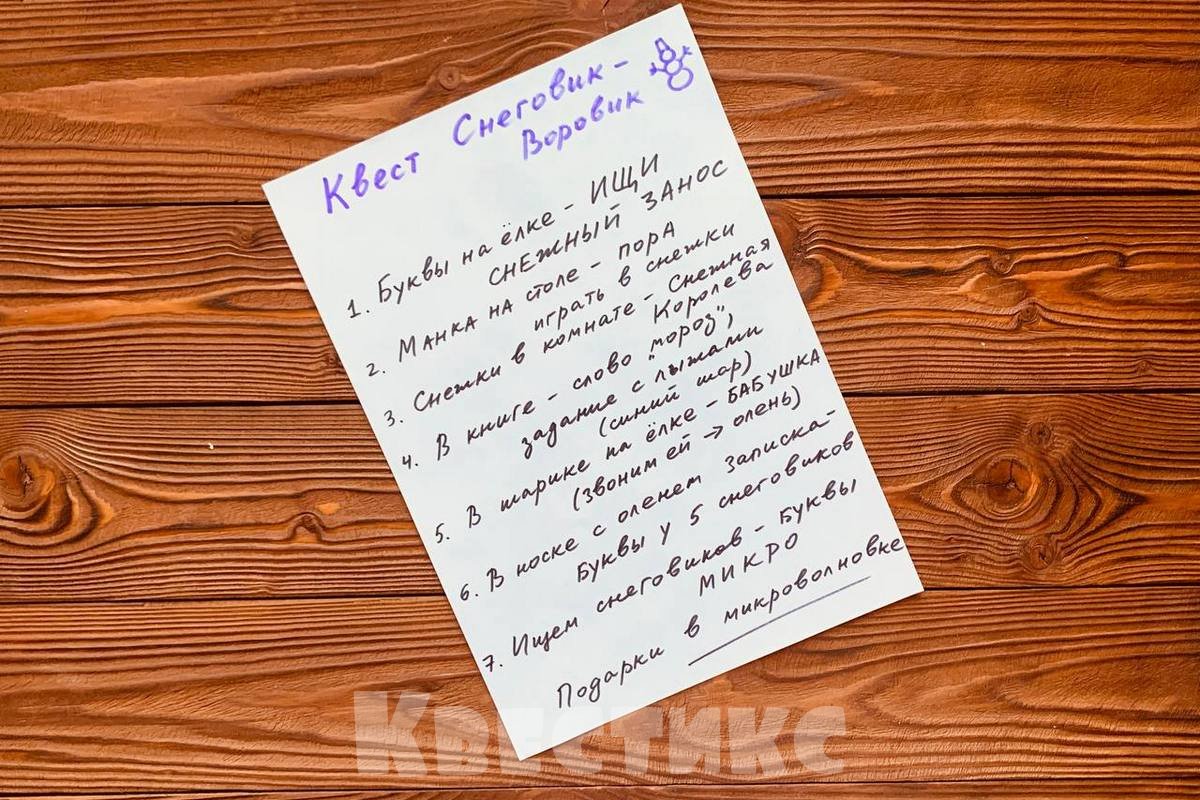 Квест Снеговик -
Воровик
1. Буквы на ёлке - ИЩИ
СНЕЖНЫЙ ЗАНОС
2. Манка на столе - пора
играть в снежки
3. Снежки в комнате - Снежная
Королева
4. В книге - слово "мороз",
задание с лыжами
(синий шар)
5. В шарике на ёлке - БАБУШКА
(звоним ей → олень)
6. В носке с оленем записка -
Буквы у 5 снеговиков
7. Ищем снеговиков - Буквы
МИКРО
Подарки в микроволновке
Квестикс